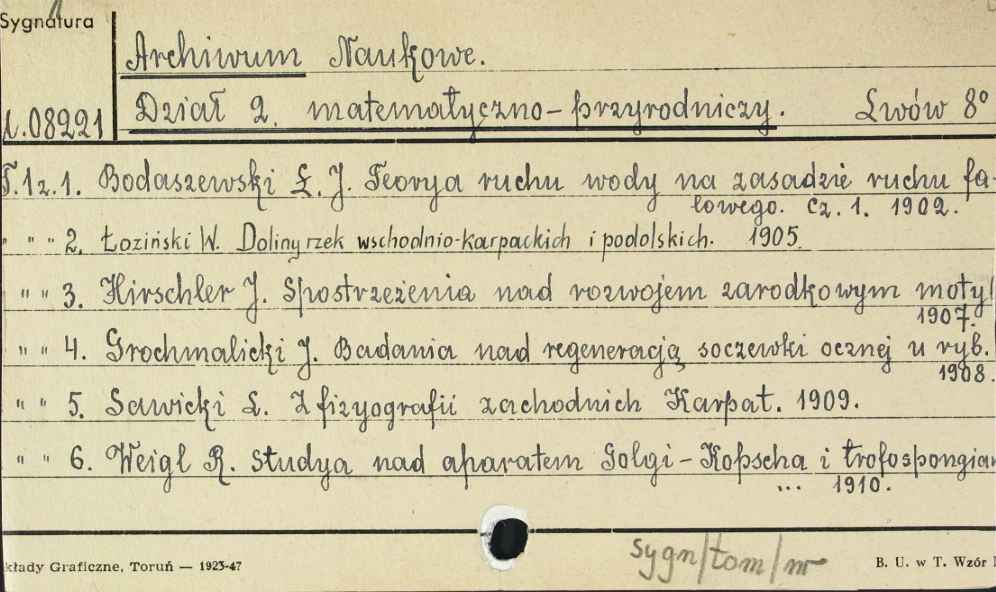 Sygnatura
Archiwum Naukowe.
08221
Dział 2. matematyczno-przyrodniczy. Lwów 8°
T.1z.1. Bodaszewski Ł. J. Teorya ruchu wody na zasadzie ruchu fa-
lowego. Cz. 1. 1902.
" " " 2. Łoziński W. Doliny rzek wschodnio-karpackich i podolskich. 1905.
" " 3. Hirschler J. Spostrzeżenia nad rozwojem zarodkowym motyl
1907.
" " 4. Grochmalicki J. Badania nad regeneracją soczewki ocznej u ryb.
1908.
" " 5. Sawicki L. Z fizyografii zachodnich Karpat. 1909.
" " 6. Weigl R. Studya nad aparatem Golgi-Kopscha i trofospongian
... 1910.
sygn/tom/nr
kłady Graficzne, Toruń — 1923-47
B. U. w T. Wzór